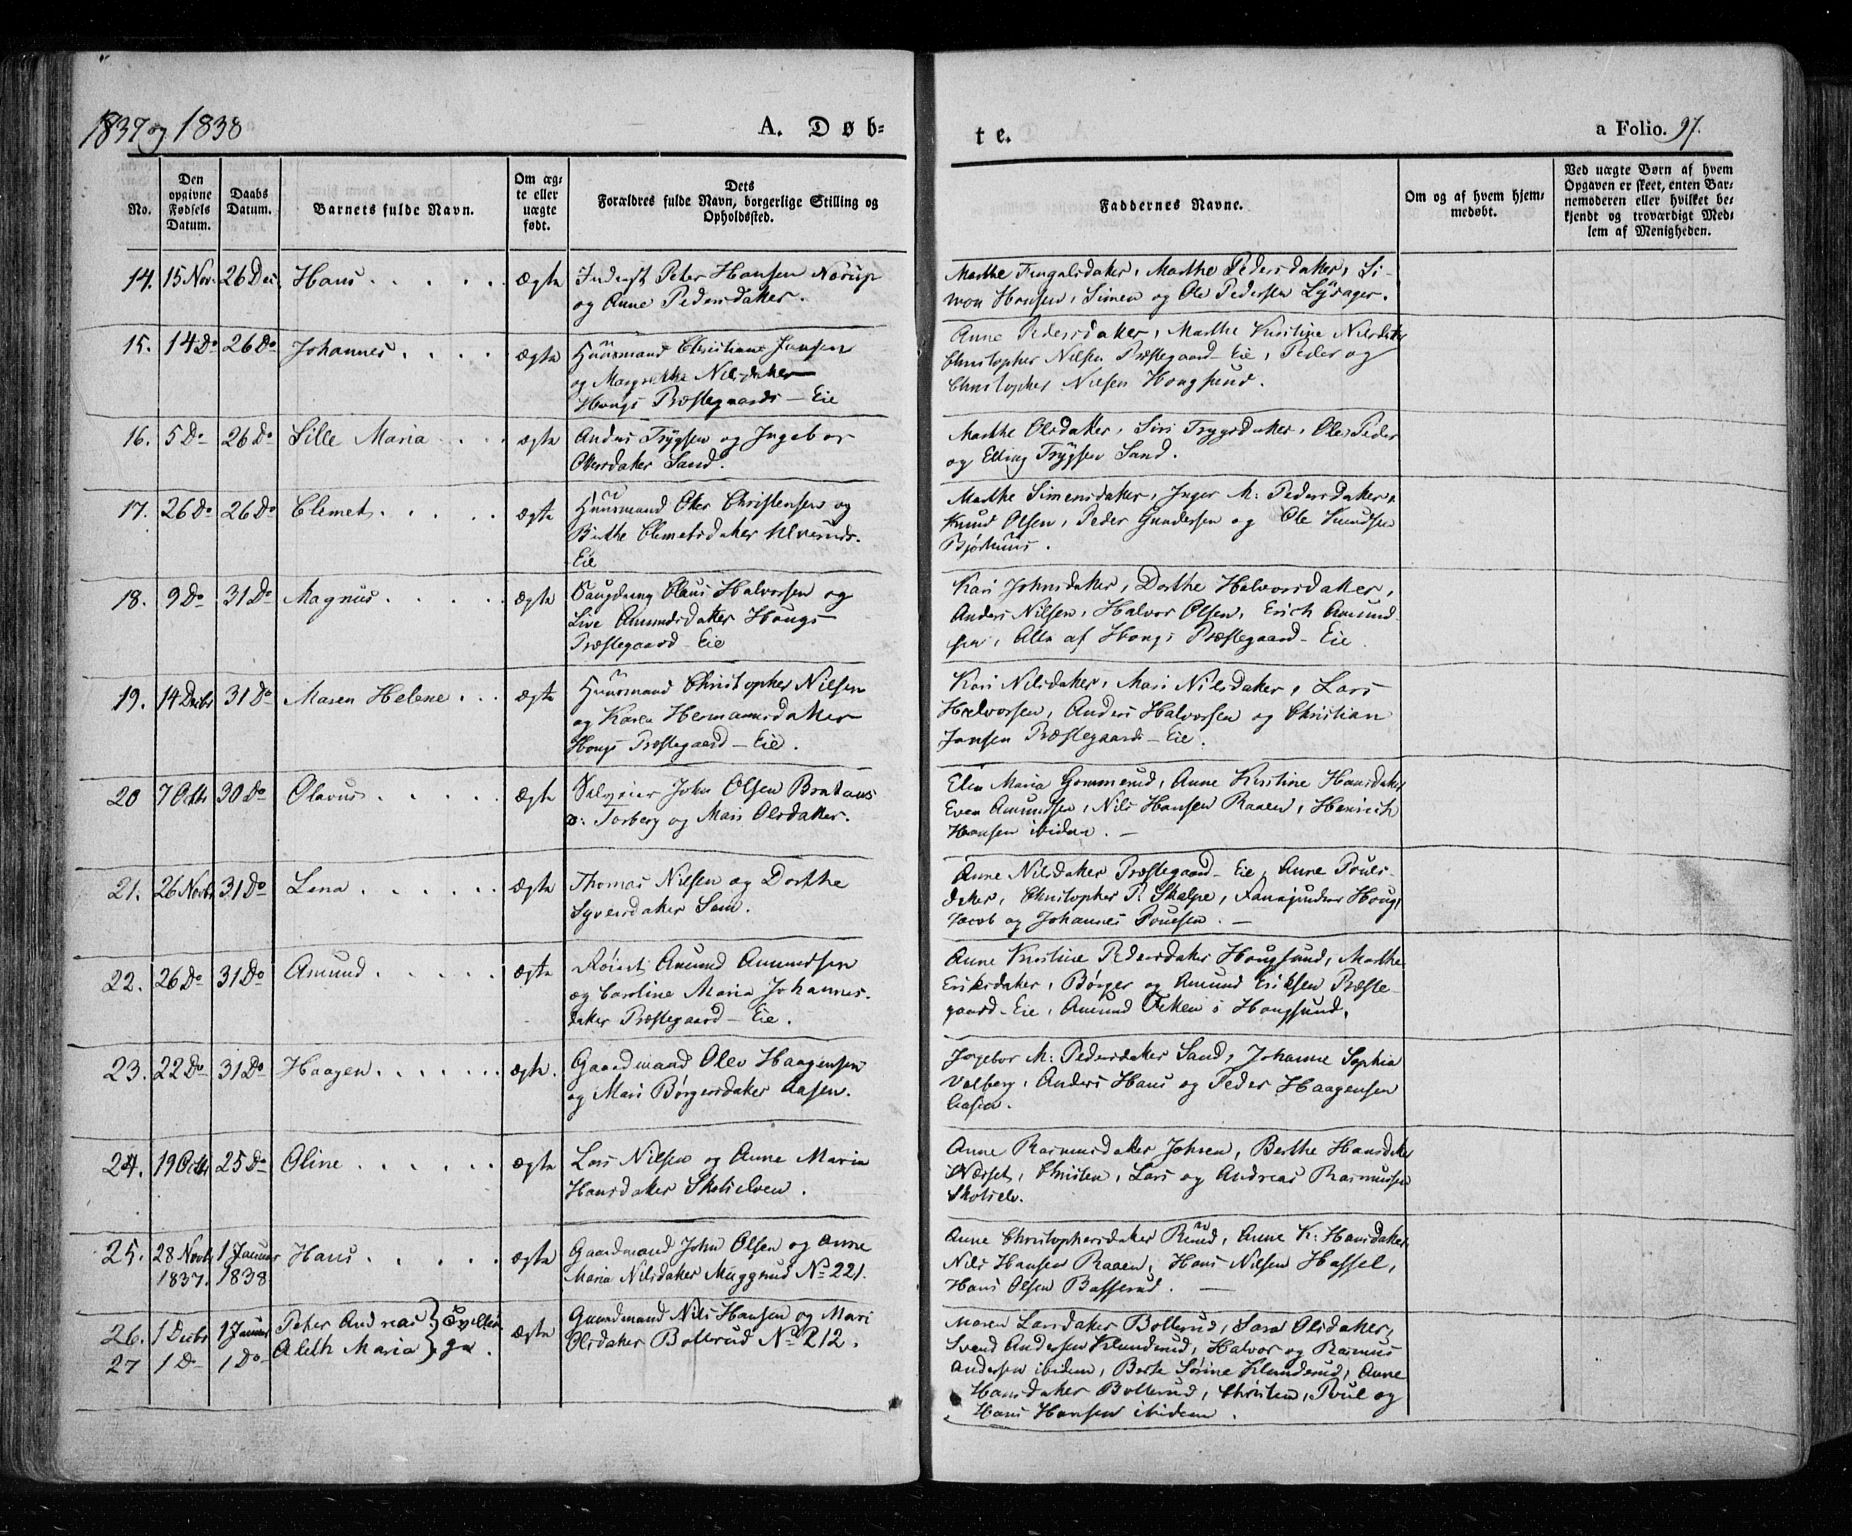 1837 og 1838
A. Døb-
te.
a Folio. 97.
No.
Den opgivne Fødsels Datum.
Daabs Datum.
Barnets fulde Navn.
Om ægte eller uægte født.
Dets Forældres fulde Navn, borgerlige Stilling og Opholdssted.
Faddernes Navne.
Om og af hvem hjemmedøbt.
Ved uægte Børn af hvem Opgaven er skeet, enten Barnemoderen eller hvilket bekjendt og troværdigt Medlem af Menigheden.
14. 15 Nov. 26 Dec. Hans ægte
Inderst Peter Hansen Nörup
og Anne Pedersdatter.
Marthe Pedersdatter, Si-
mon Hansen, Simen og Ole Pedersen
15. 14 Do 26 Do Johannes ægte
Huusmand Christian Jansen
og Margrethe Nilsdatter
Hougs Præstegaards-Eie
Anne Pedersdatter, Marthe Kirstine Nilsdatter
Christopher Nilsen Præstegaard-Eie, Peder og
Christopher Nilsen Hougsund.
16. 5 Do 26 Do Sille Maria ægte
Anders Trygsen og Ingebor
Olersdatter Sand.
Marthe Olsdatter, Siri Trygsdatter, Ole Peder
og Elling Trygsen Sand.
17. 26 Do 26 Do Clemet ægte
Huusmand Oter Christensen og
Birthe Clemetsdatter Ulverud-
Eie
Marthe Simensdatter, Inger M: Pedersdatter,
Knud Olsen, Peder Gundersen og Ole Knudsen
18. 9 Do 31 Do Magnus ægte
Saugdreng Claus Halvorsen og
Live Amundsdatter Hougs
Præstegaard-Eie
Kari Johnsdatter, Dorthe Halvorsdatter,
Anders Nilsen, Halvor Olsen, Erich Amund-
sen, Alle af Hougs Præstegaard-Eie
19. 14 Decbr 31 Do Maren Helene ægte
Huusmand Christopher Nilsen
og Karen Hermansdatter
Hougs Præstegaard-Eie.
Kari Nilsdatter, Mari Nilsdatter, Lars
Halvorsen, Anders Halvorsen og Christian
Jansen Præstegaards-Eie.
20 7 Octb 30 Do Olavus ægte
Selveier John Olsen
Torberg og Mari Olsdatter.
Elen Maria Gommerud, Anne Kirstine Hansdatter
Even Amundsen, Nils Hansen Raaen, Henrich
Hansen ibidem. —
21. 26 Novb 31 Do Lena ægte
Thomas Nilsen og Dorthe
Syversdatter Sem.
Anne Nilsdatter Præstegaard-Eie, Anne Pouls-
datter, Christopher P. Skalpe, Houg,
Jacob og Johannes Poulsen. —
22. 26 Do 31 Do Amund ægte
Amund Amundsen
og Caroline Maria Johannes-
datter Præstegaard-Eie.
Anne Kirstine Pedersdatter Hougsund, Marthe
Eriksdatter, Børger og Amund Eriksen Præste-
gaard-Eie, Amund i Hougsund.
23. 22 Do 31 Do Haagen ægte.
Gaardmand Olev Haagensen
og Mari Børgersdatter Aasen.
Ingebor M: Pedersdatter Sand, Johanne Sophia
Valberg, Anders Hans og Peder Haagensen
Aasen.
24. 19 Octb 25 Do Oline ægte
Lars Nilsen og Anne Maria
Hansdatter Skotselven.
Anne Rasmusdatter Johsen, Berthe Hansdatter
Nærset, Christen, Lars og Andreas Rasmussen
Skotselv.
25. 28 Novb 1837. 1 Januar 1838 Hans ægte
Gaardmand John Olsen og Anne
Maria Nilsdatter Muggerud No 221.
Anne Christophersdatter Ruud, Anne K: Hansdatter
Nils Hansen Raaen, Hans Nilsen Hassel,
Hans Olsen Basserud. —
26. 1 Decbr 1 Januar Peter Andreas } Tvillin-
27 1 Do 1 Do Aleth Maria } ger. ægte
Gaardmand Nils Hansen og Mari
Olsdatter Bollerud No 212.
Maren Larsdatter Bollerud, Sara Olsdatter,
Svend Andersen Klunderud, Halvor og Rasmus
Andersen ibidem, Berte Sørine Klunderud, Anne
Hansdatter Bollerud, Christen, Poul og
Hans Hansen ibidem.